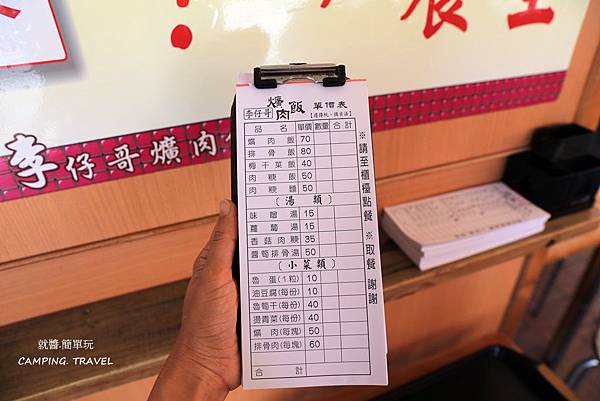 李仔哥
爌肉飯 單價表
【遵傳統‧讚古法】
品名 單價 數量 合計
爌肉飯 70
排骨飯 80
梅干菜飯 40
肉粳飯 50
肉粳麵 50
〔湯類〕
味噌湯 15
蘿蔔湯 15
香菇肉粳 35
醬筍排骨湯 50
〔小菜類〕
魯蛋(1粒) 10
油豆腐(每份) 10
魯筍干(每份) 40
燙青菜(每份) 40
爌肉(每塊) 50
排骨肉(每塊) 60
合計
※請至櫃檯點餐 ※取餐 謝謝
李仔哥爌肉
就醬.簡單玩
CAMPING. TRAVEL